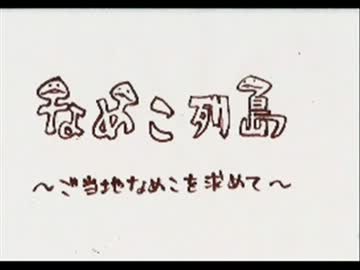 なめこ列島
～ご当地なめこを求めて～